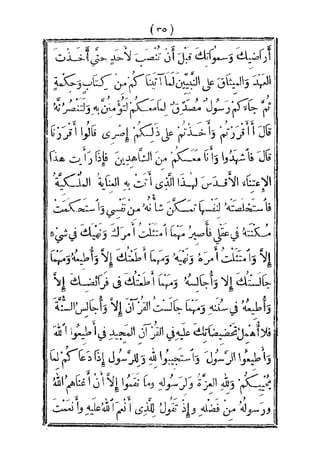 ( ٣٥ )
أراضيك وسمواتك قبل أن تنصب لأحد حتى أخذت
العهد والميثاق على النبيين لما آتيناكم من كتاب وحكمة
ثم جاءكم رسول مصدق لما معكم لتؤمنن به ولتنصرنه
قال أأقررتم وأخذتم على ذلكم إصرى قالوا أقررنا
قال فاشهدوا وأنا معكم من الشاهدين فإذا رأيت هذا
الإعتناء الأقدس لهذا الذى أتت به العناية الملكية
فاستخلصته لنفسها تمكن شأنه من نفسى واستحكمت
مكنته فى عقلى فأصير مهما امتثلت أمرك ونهيك فى شىء
إلا وامتثلت أمره ونهيه ومهما أطعتك إلا وأطيعه ومهما
جالستك إلا وأجالسه ومهما أطعتك فى فرائضك إلا
وأطيعه فى سننه ومهما جالست القرآن إلا وأجالس السنة
فلا أهمل تحضيضاتك عليه فى القرآن المجيد فى أطيعوا الله
وأطيعوا الرسول واستجيبوا لله وللرسول إذا دعاكم لما
يحييكم ولله العزة ولرسوله وما نقموا إلا أن أغناهم الله
ورسوله من فضله وإذ تقول للذى أنعم الله عليه وأنعمت